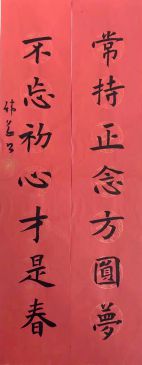 常持正念方圓夢
不忘初心才是春